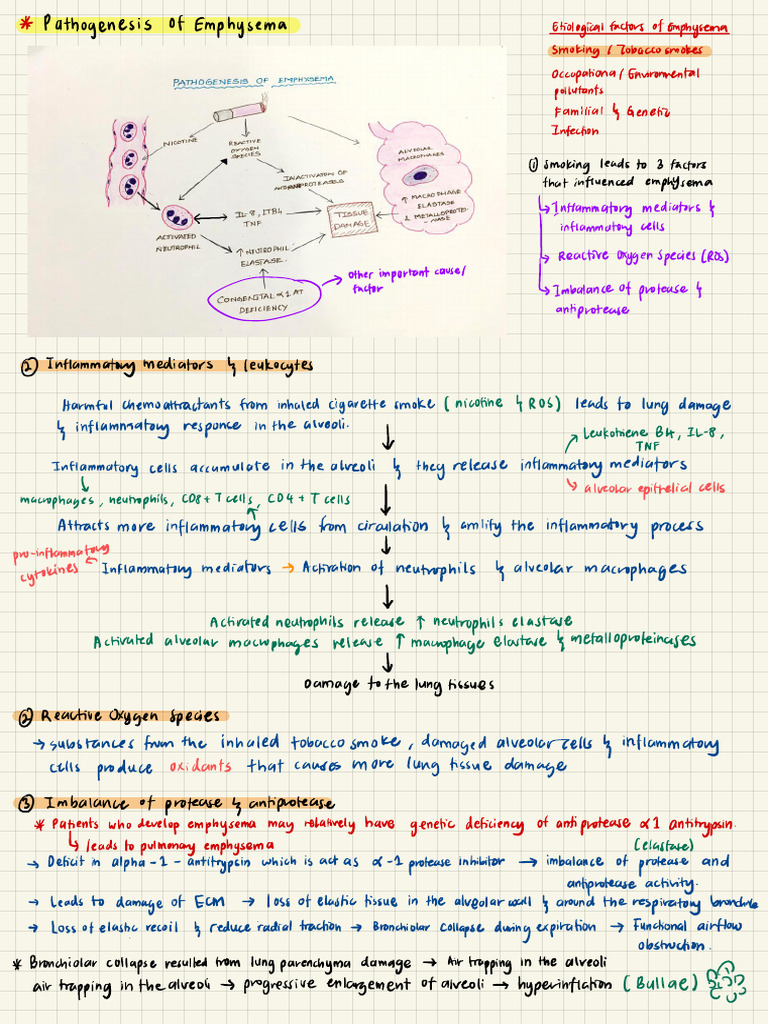 * Pathogenesis of Emphysema
Etiological factors of Emphysema
Smoking / Tobacco smokes
Occupationa / Environmental
pollutants
Familial & Genetic
Infection
PATHOGENESIS OF EMPHYSEMA
NICOTINE
REACTIVE
OXYGEN
SPECIES
INACTIVATION OF
ALVEOLAR
MACROPHAGES
↑ MACROPHAGE
ELASTASE
& METALLOPROTEI-
NASE
IL-8, LTB4
TNF
TISSUE
DAMAGE
ACTIVATED
NEUTROPHIL
↑ NEUTROPHIL
ELASTASE.
CONGENITAL α1 AT
DEFICIENCY
→ other important cause/
factor
① Smoking leads to 3 factors
that influenced emphysema
↳ Inflammatory mediators &
inflammatory cells
↳ Reactive Oxygen Species (ROS)
↳ Imbalance of protease &
antiprotease
② Inflammatory mediators & leukocytes
Harmful chemoattractants from inhaled cigarette smoke (nicotine & ROS) leads to lung damage
& inflammatory responce in the alveoli.
Leukotriene B4, IL-8,
TNF
Inflammatory cells accumulate in the alveoli & they release inflammatory mediators
alveolar epithelial cells
macrophages, neutrophils, CD8+ T cells, CD4 + T cells
Attracts more inflammatory cells from circulation & amlify the inflammatory process
pro-inflammatory
cytokines
Inflammatory mediators → Activation of neutrophils & alveolar macrophages
Activated neutrophils release ↑ neutrophils elastase
Activated alveolar macrophages release ↑ macrophage elastase & metalloproteinases
Damage to the lung tissues
② Reactive Oxygen Species
→ substances from the inhaled tobacco smoke, damaged alveolar cells & inflammatory
cells produce oxidants that causes more lung tissue damage
③ Imbalance of protease & antiprotease
* Patients who develop emphysema may relatively have genetic deficiency of antiprotease α1 antitrypsin.
↳ leads to pulmonary emphysema
(elastase)
→ Deficit in alpha-1-antitrypsin which is act as α-1 protease inhibitor → imbalance of protease and
antiprotease activity.
→ Leads to damage of ECM → loss of elastic tissue in the alveolar wall & around the respiratory bronchiole
→ Loss of elastic recoil & reduce radial traction → Bronchiolar collapse during expiration → Functional airflow
obstruction.
* Bronchiolar collapse resulted from lung parenchyma damage → Air trapping in the alveoli
air trapping in the alveoli → progressive enlargement of alveoli → hyperinflation (Bullae)